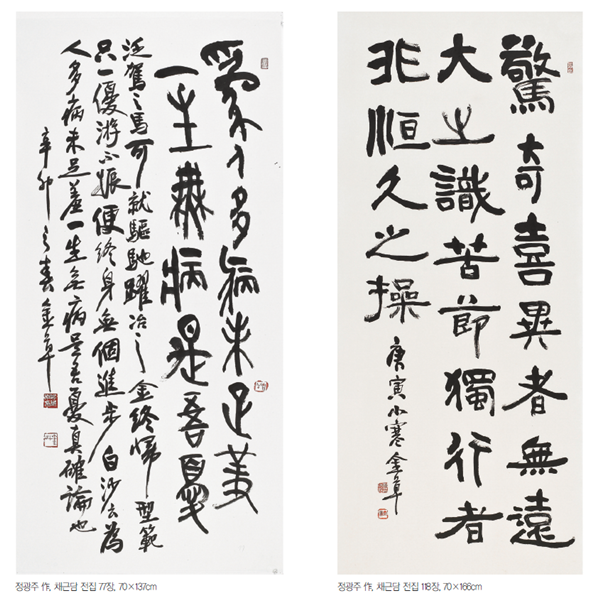 爲人多病未足羞
一生無病是吾憂
泛駕之馬可就驅馳躍冶之金終歸型範
只一優游不振便終身無個進步白沙云爲
人多病未足羞一生無病是吾憂真確論也
辛卯之春金草
정광주 作, 채근담 전집 77장, 70×137cm
驚奇喜異者無遠
大之識苦節獨行者
非恒久之操
庚寅小寒金草
정광주 作, 채근담 전집 118장, 70×166cm